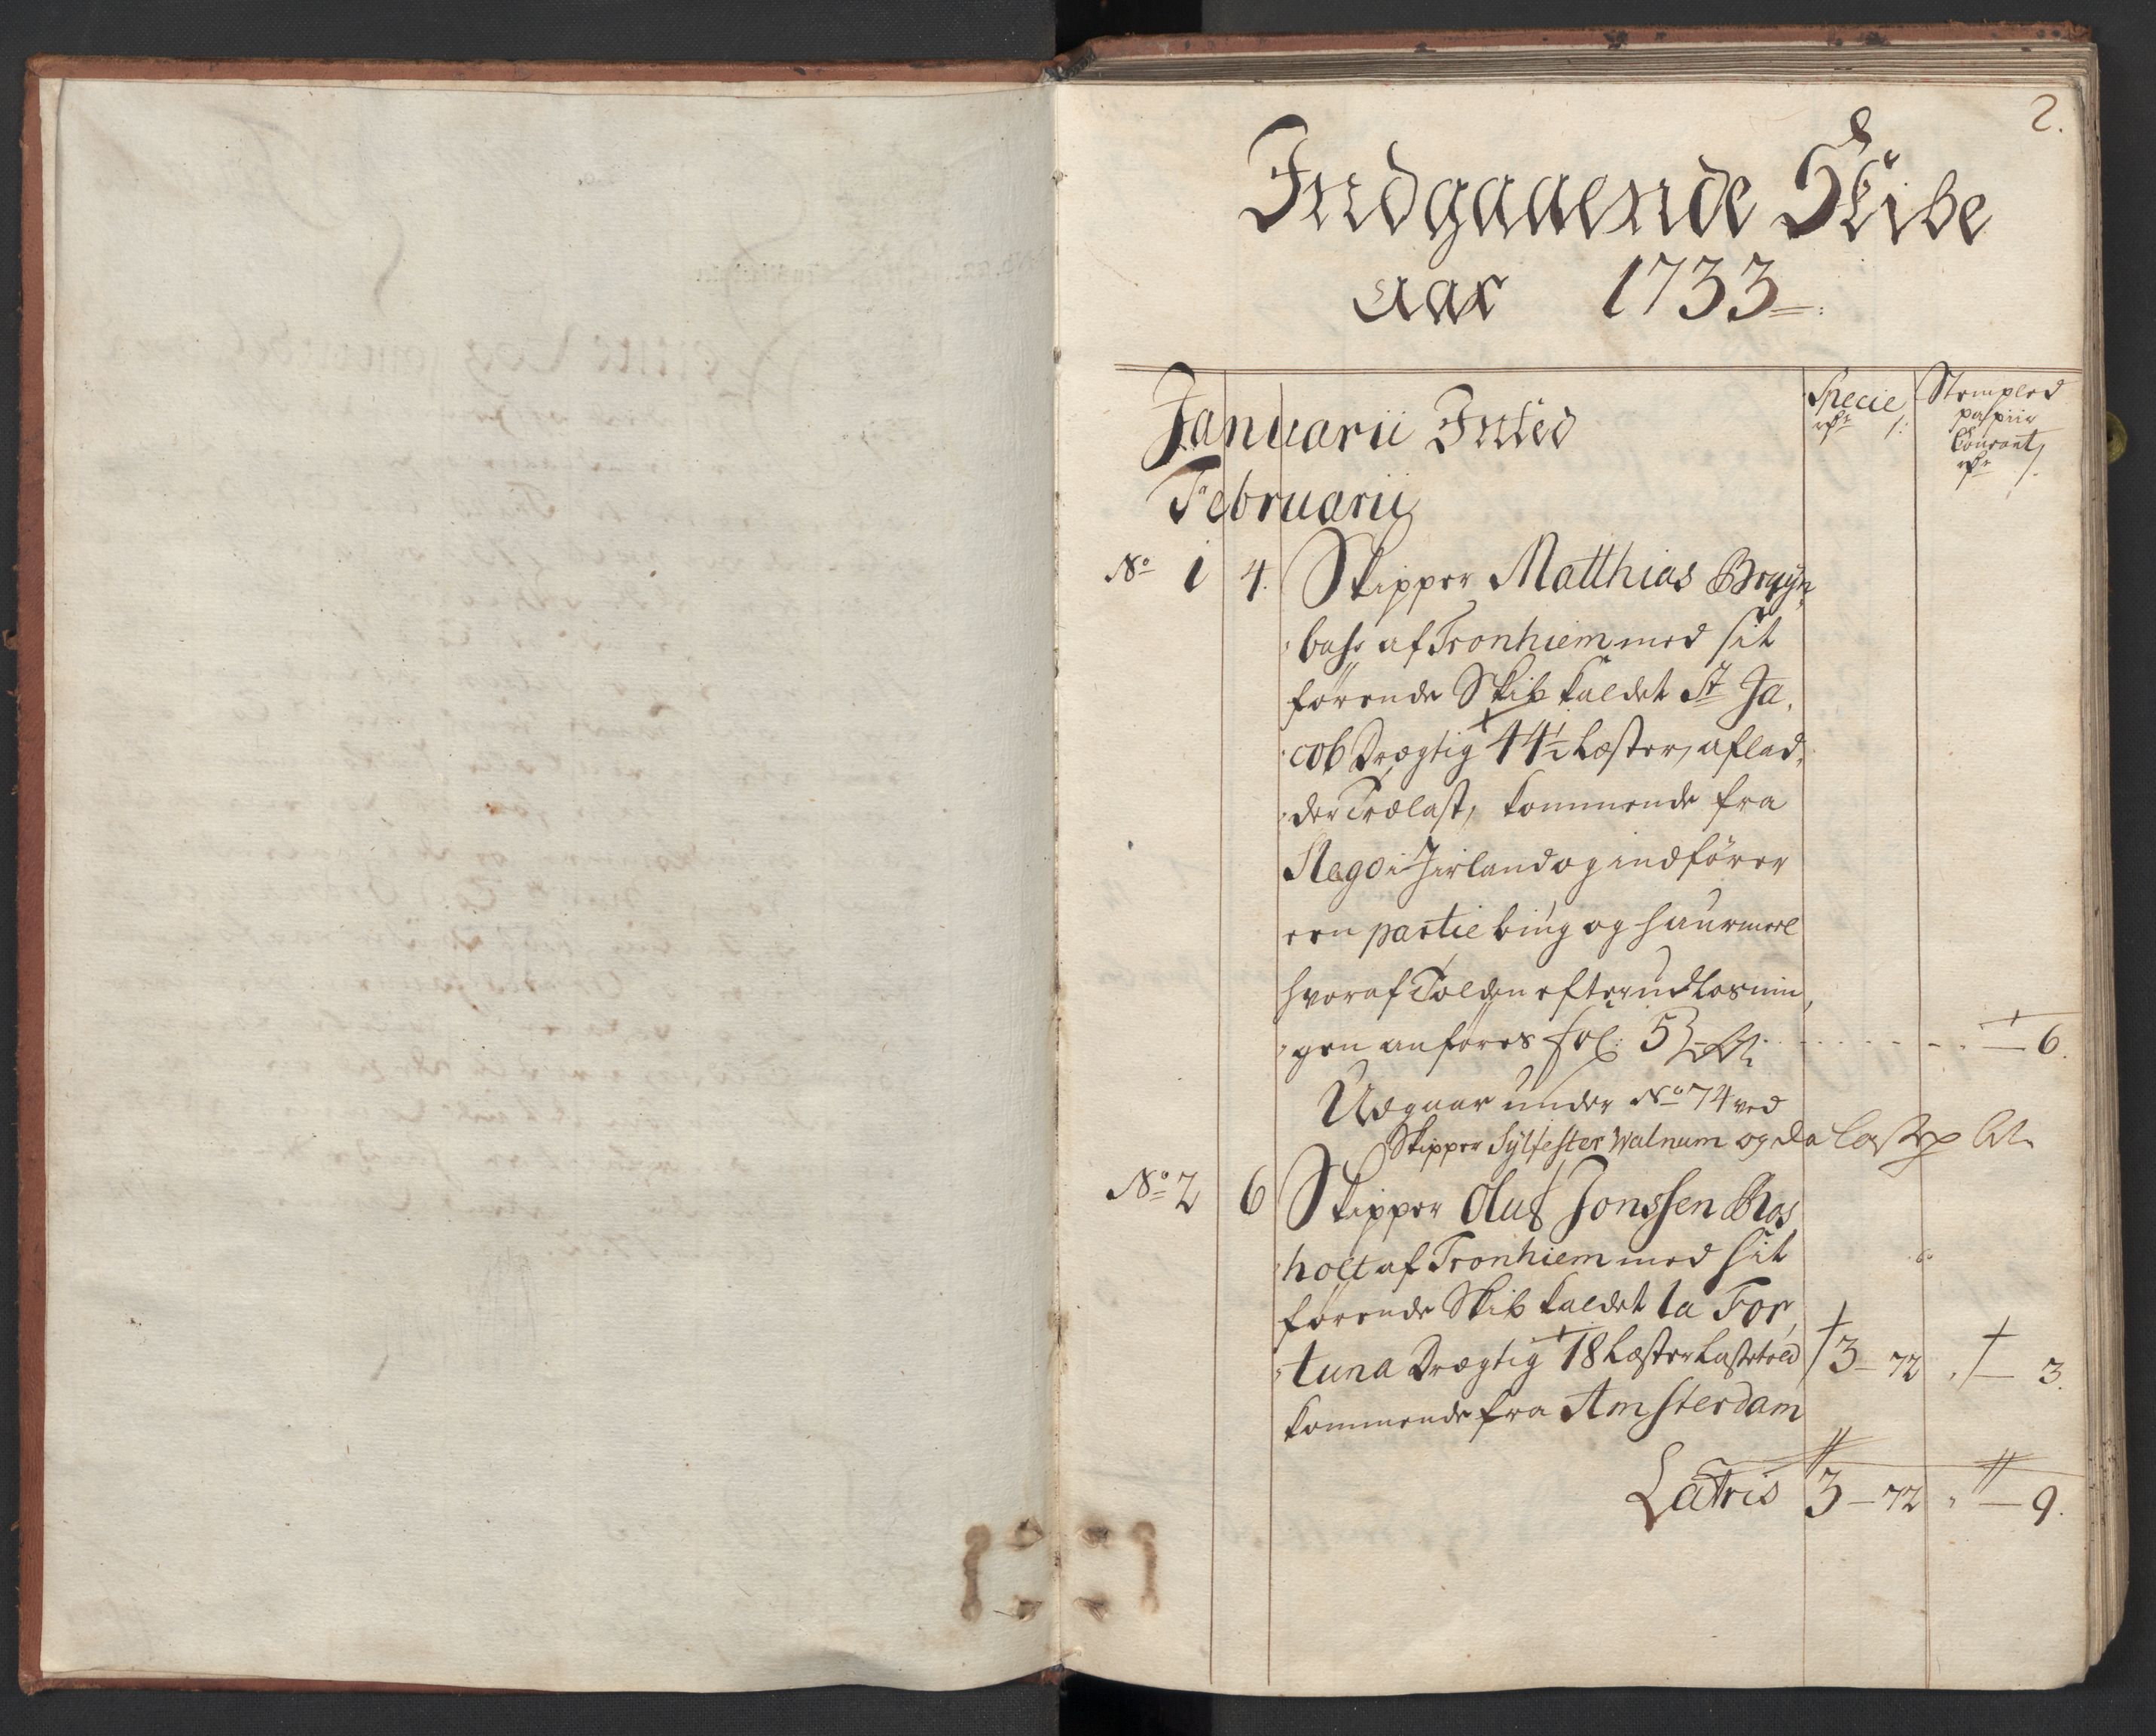 2.
Indgaaende Skibe
aar 1733
Januarii Inted
Specie
rdr s:
Stempled
papiir
Courant
rdr s.
Februarii
No 1 4. Skipper Matthias Bruyn,
af Tronhiem med sit
førende Skib kaldet St Ja,
cob drægtig 44½ Læster, aflad,
der Trælast, kommende fra
Slego i Jirland og indfører
een partie biug og haurmeel
hvoraf Tolden efter udlosnin,
gen anføres fol: 5 - - - - 6.
Udgaar under No 74 ved
Skipper Sylfester Walnum og da
No 2 6 Skipper Oluf Jonssen Ros,
holt af Tronhiem med sit
førende Skib kaldet la For,
tuna drægtig 18 Læster Lastetold 3 - 72 - 3.
kommende fra Amsterdam
Latris 3 - 72 - 9.